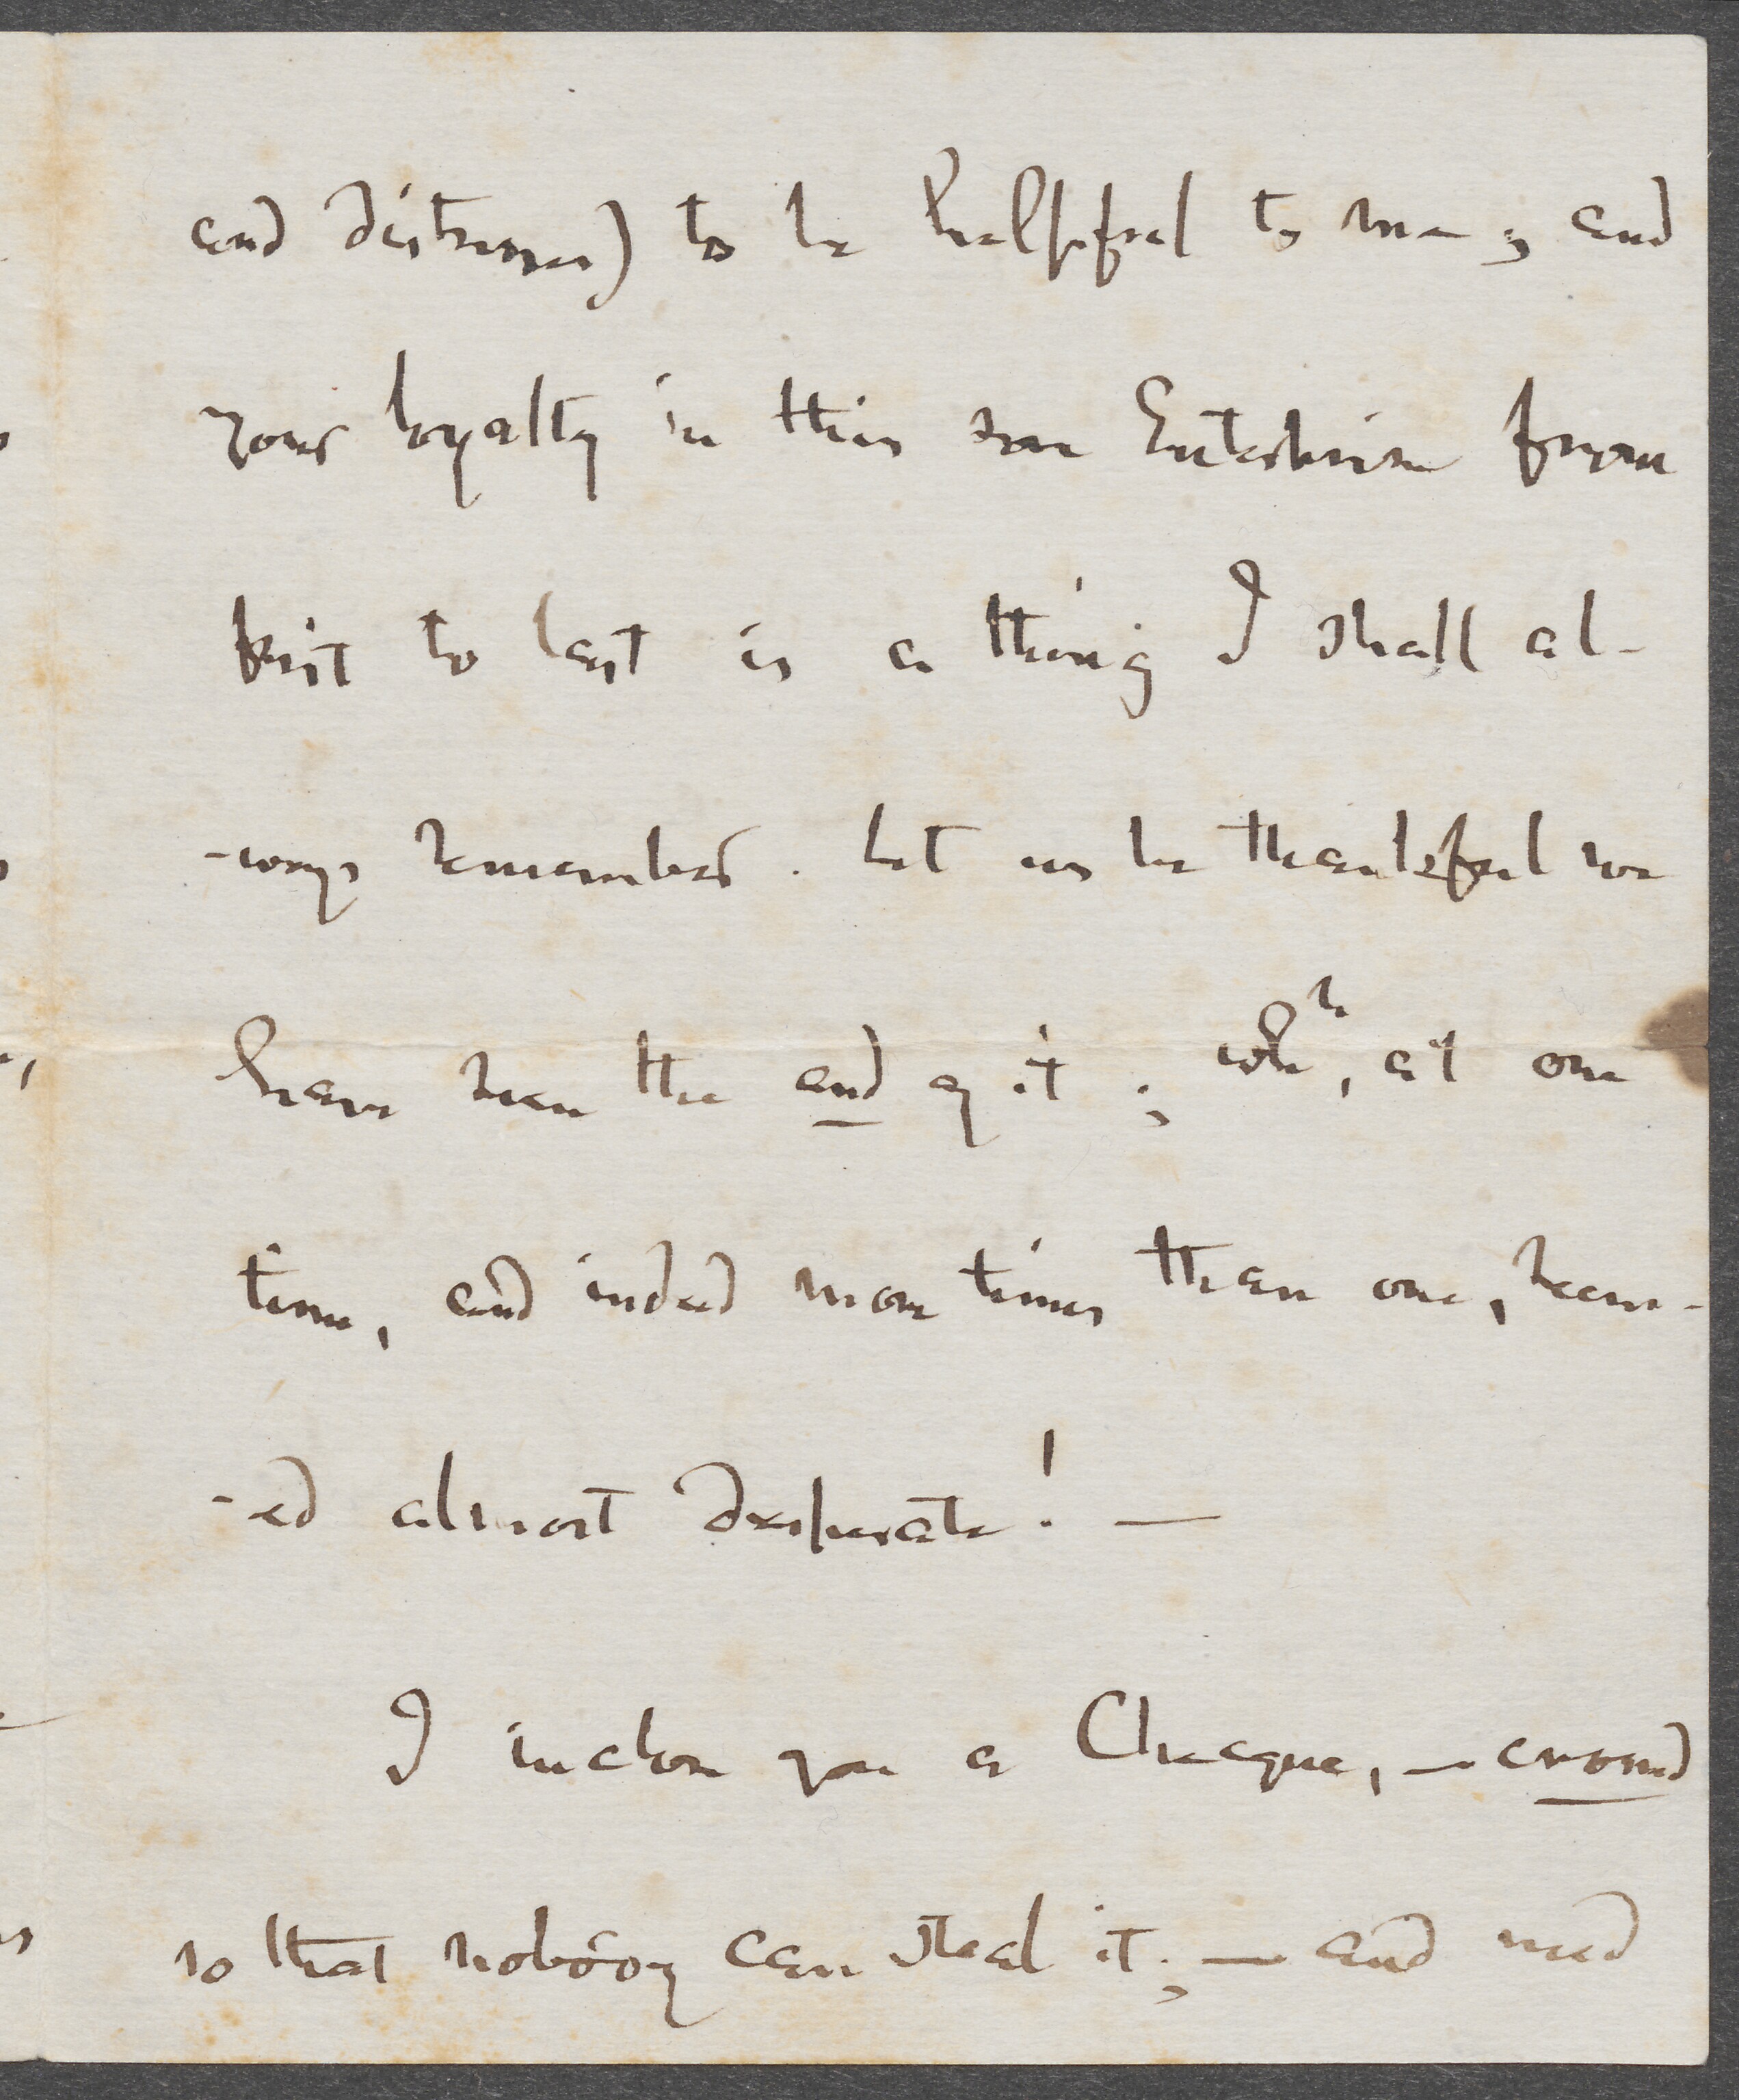 and distresses) to be helpful to me; and
your loyalty in this sore Enterprise from
first to last is a thing I shall al-
-ways remember. Let us be thankful we
have seen the end of it; whh, at one
time, and indeed more times than one, seem-
-ed almost desperate! —
I inclose you a Cheque, — crossed
so that nobody can steal it; — and need